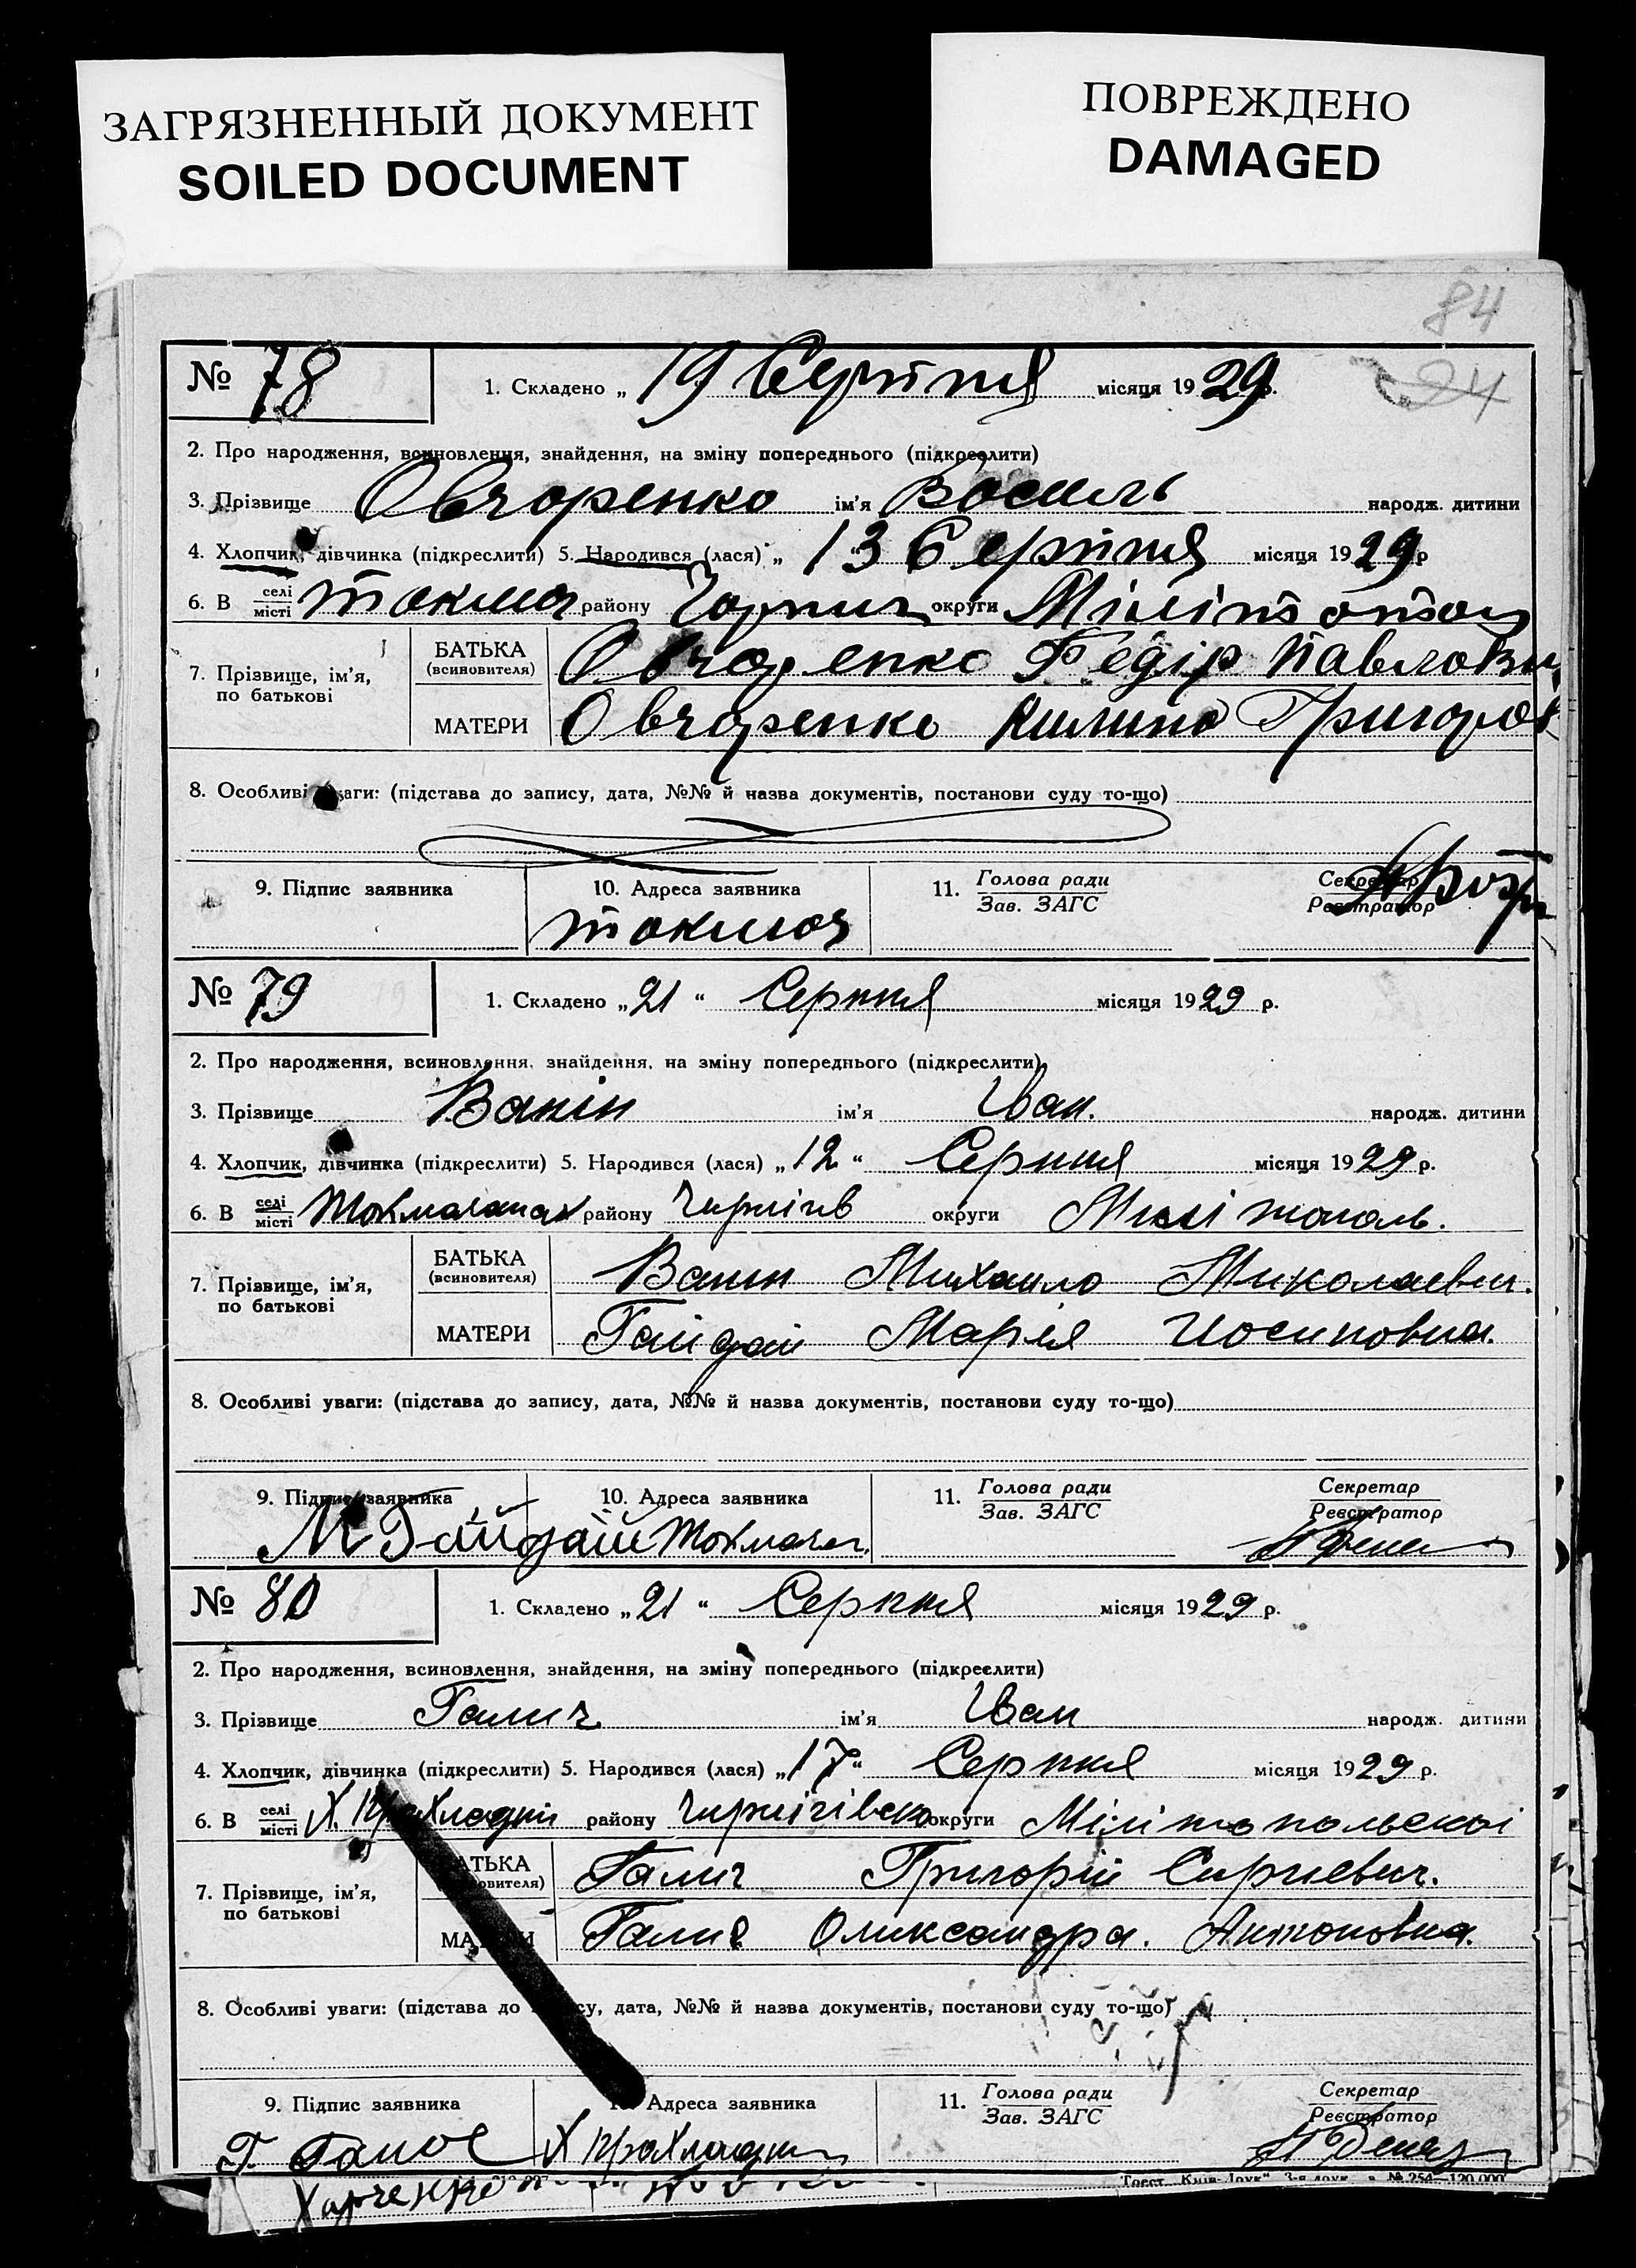 ЗАГРЯЗНЕННЫЙ ДОКУМЕНТ
SOILED DOCUMENT
ПОВРЕЖДЕНО
DAMAGED
84
№ 78 1. Складено „ 19 Серпня місяця 1929 р.
2. Про народження, всиновлення, знайдення, на зміну попереднього (підкреслити)
3. Прізвище Овчаренко ім'я Василь народж. дитини
4. Хлопчик, дівчинка (підкреслити) 5. Народився (лася) „ 13 Серпня місяця 1929 р
6. В селі місті Токмач району Черниг округи Мілітопол
7. Прізвище, ім'я, по батькові
БАТЬКА (всиновителя) Овчаренко Федір Павлови
МАТЕРИ Овчаренко Килина Григоров
8. Особливі уваги: (підстава до запису, дата, №№ й назва документів, постанови суду то-що)
9. Підпис заявника 10. Адреса заявника 11. Голова ради Зав. ЗАГС Секретар Реєстратор
Токмач
№ 79 1. Складено „21“ Серпня місяця 1929 р.
2. Про народження, всиновлення, знайдення, на зміну попереднього (підкреслити)
3. Прізвище Ванін ім'я Іван. народж. дитини
4. Хлопчик, дівчинка (підкреслити) 5. Народився (лася) „12“ Серпня місяця 1929 р.
6. В селі місті Токмачанах району Чернігів округи Мілітополь.
7. Прізвище, ім'я, по батькові
БАТЬКА (всиновителя) Ванин Михаило Миколаевич.
МАТЕРИ Гайдай Марія Иосиповна.
8. Особливі уваги: (підстава до запису, дата, №№ й назва документів, постанови суду то-що)
9. Підпис заявника 10. Адреса заявника 11. Голова ради Зав. ЗАГС Секретар Реєстратор
М Гайдай Токмачан.
№ 80 1. Складено „21“ Серпня місяця 1929 р.
2. Про народження, всиновлення, знайдення, на зміну попереднього (підкреслити)
3. Прізвище Галич ім'я Иван народж. дитини
4. Хлопчик, дівчинка (підкреслити) 5. Народився (лася) „17“ Серпня місяця 1929 р.
6. В селі місті Х. Прохладний району Чернігівськ округи Мілітопольскоі
7. Прізвище, ім'я, по батькові
БАТЬКА Галич Григорій Сиргиевич.
МАТЕРИ Галич Олександра. Антоновна.
8. Особливі уваги: (підстава до запису, дата, №№ й назва документів, постанови суду то-що)
9. Підпис заявника Адреса заявника 11. Голова ради Зав. ЗАГС Секретар Реєстратор
Г. Х Прохладни
Харченко